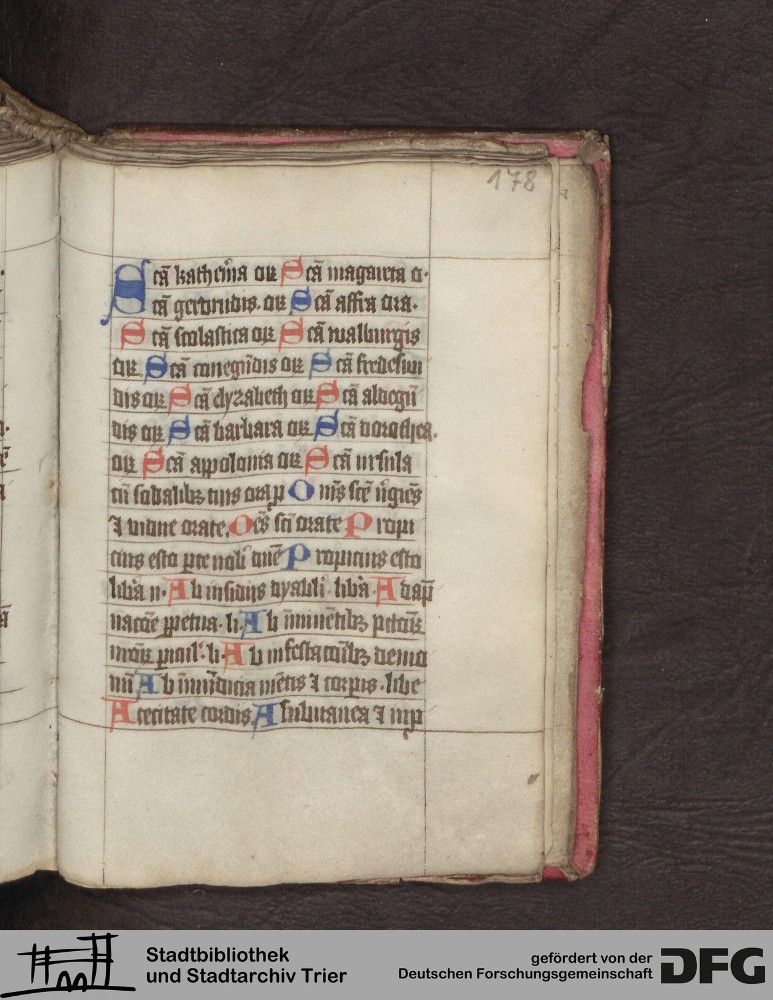 178
Scā katherina oꝛ Scā magareta o.
Scā gerdrudis. oꝛ Scā affra ora.
Scā scolastica oꝛ Scā walburgis
oꝛ Scā cunegūdis oꝛ Scā fredeswi
dis oꝛ Scā elyzabeth oꝛ Scā aldegū
dis oꝛ Scā barbara oꝛ Scā dorothea.
oꝛ Scā appolonia oꝛ Scā ursula
cū sodalibꝫ tuis orap̄ Om̄s scē v̓gies
⁊ vidue orate. Oēs sci orate Propi
cius esto pce nob̓ dn̄e Propicius esto
lib̓a n. Ab insidiis dyaboli lib̓a. A dāp
nacōe ppetua. li. Ab īminētibꝫ pctōꝝ
nr̄oꝝ picul. li. Ab infestacōibꝫ demo
nū Ab īmūdicia mētis ⁊ corpis. libe
A cecitate cordis. A subitanea ⁊ inp
Stadtbibliothek
und Stadtarchiv Trier
gefördert von der
Deutschen Forschungsgemeinschaft
DFG